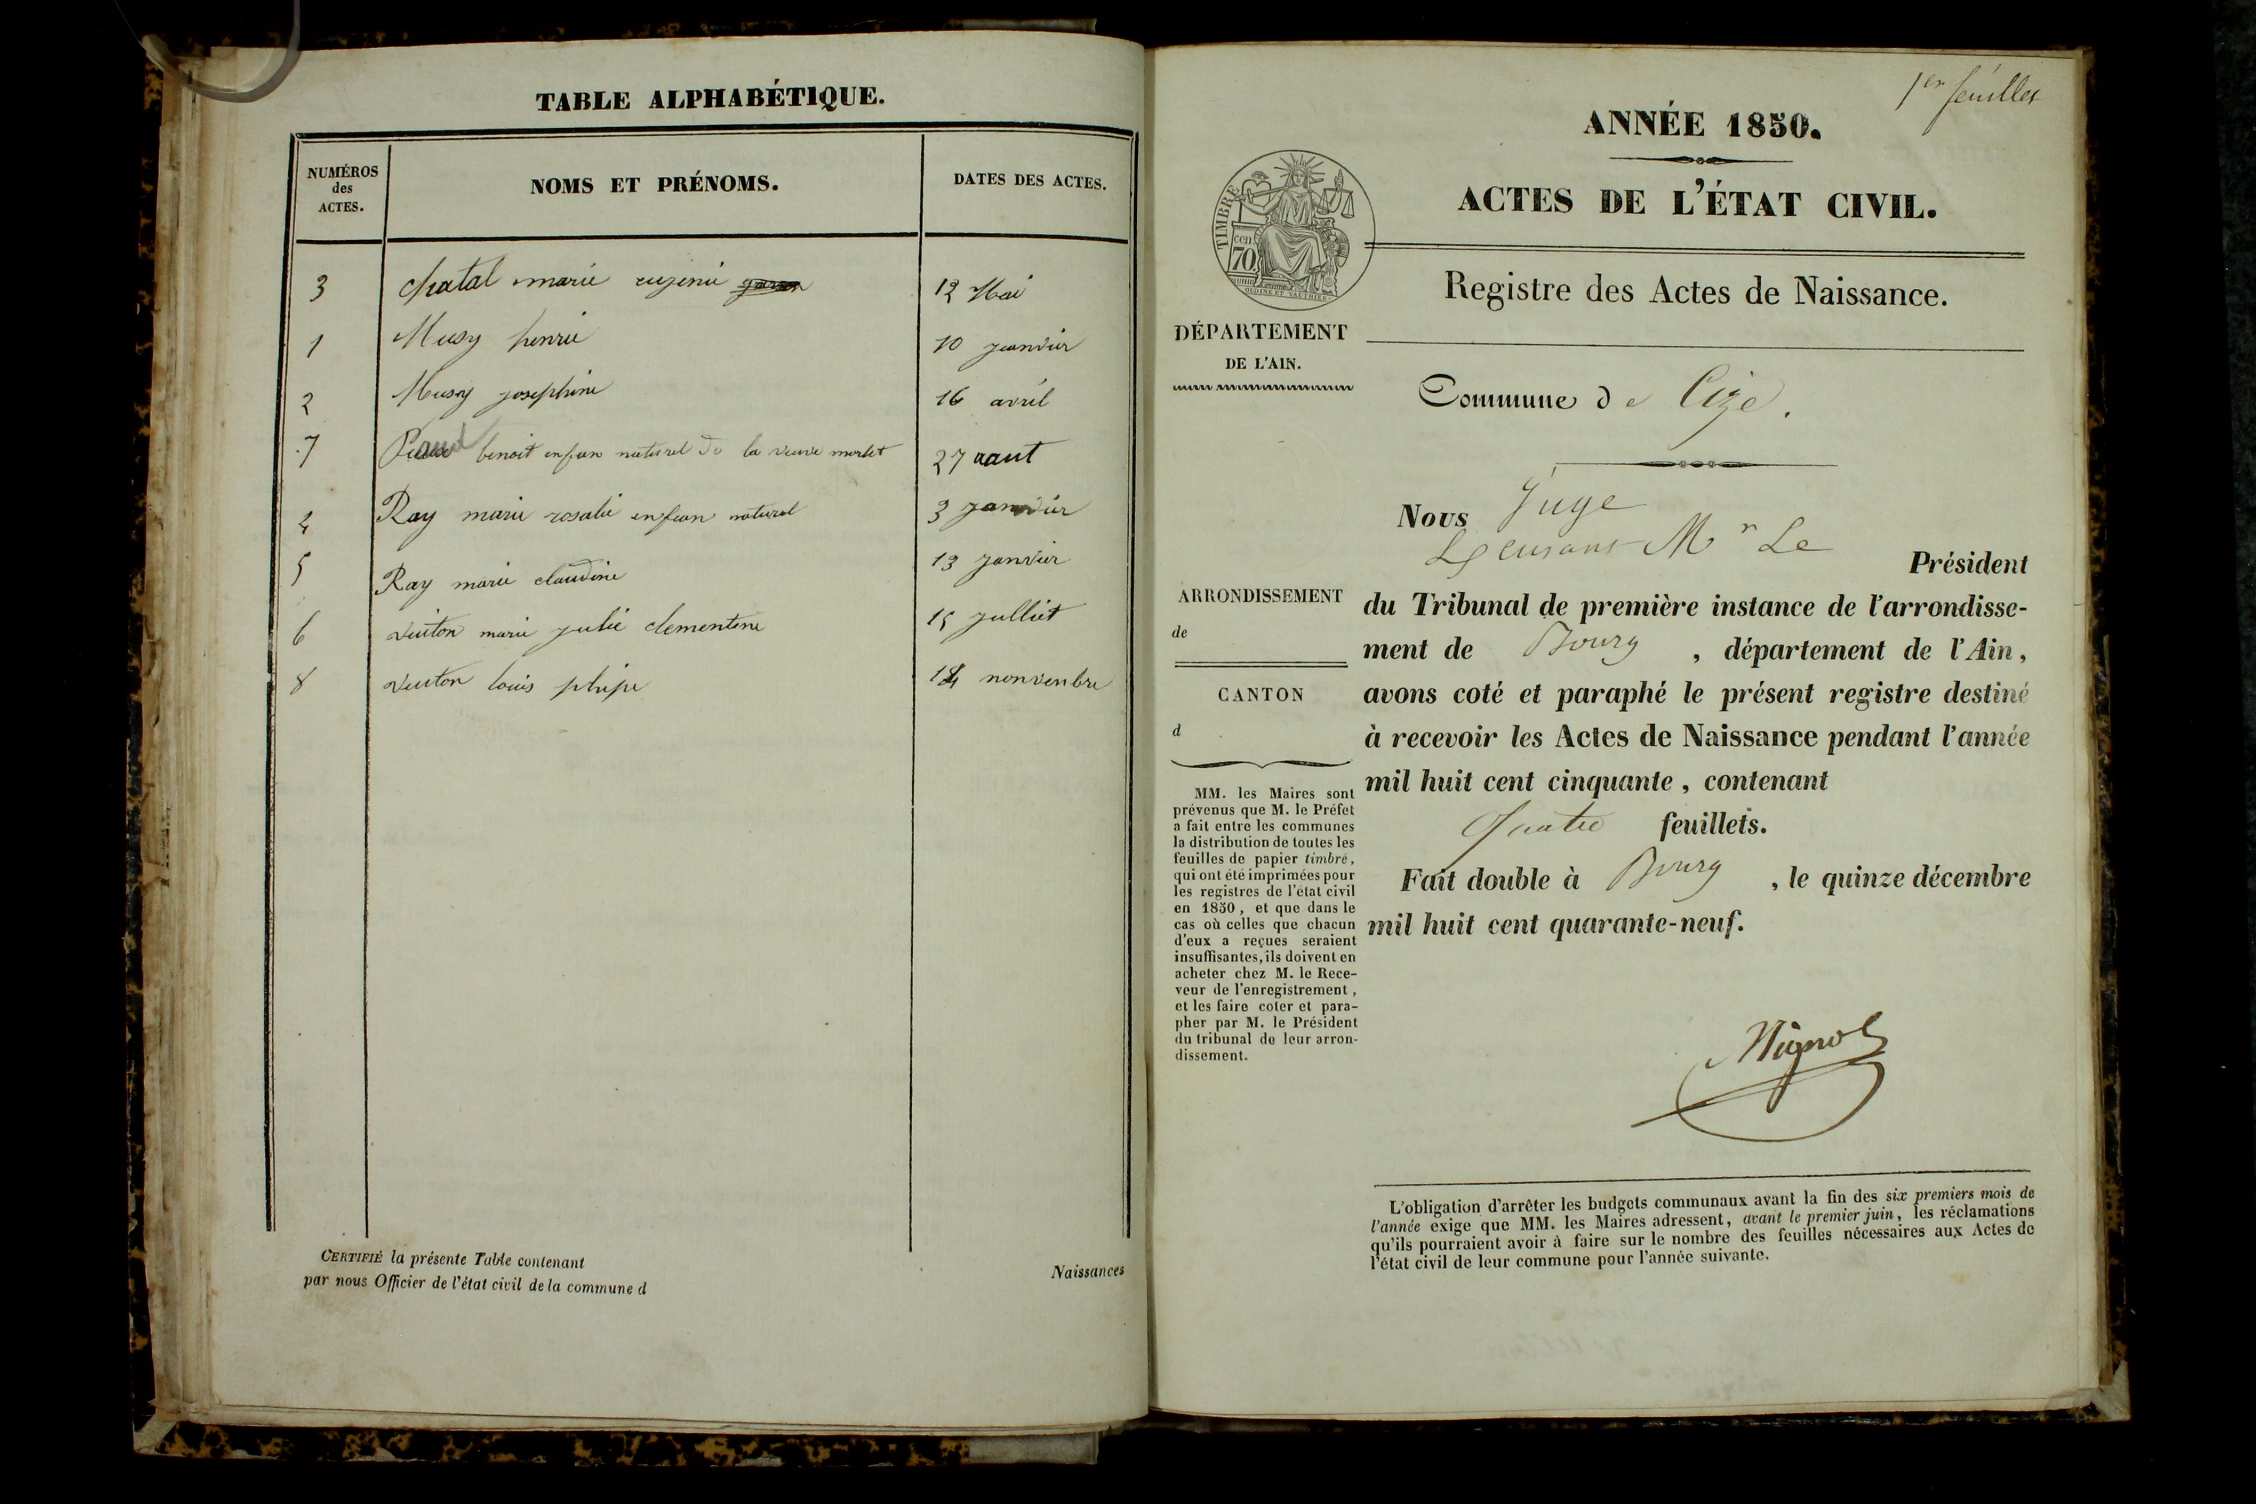 TABLE ALPHABÉTIQUE.
NUMÉROS
des
ACTES.
NOMS ET PRÉNOMS.
DATES DES ACTES.
3 chatal marie eugenie 12 Mai
1 Musy henrie 10 janvier
2 Musy josephine 16 avril
7 benoit enfan naturel de la veuve morlet 27 aaut
4 Ray marie rosalie enfean naturel 3 janvier
5 Ray marie claudine 13 janvier
6 vuiton marie julie clementine 15 julliet
8 vuiton louis phipe 14 nonvenbre
CERTIFIÉ la présente Table contenant Naissances
par nous Officier de l'état civil de la commune d
1er feuillet
ANNÉE 1850.
ACTES DE L'ÉTAT CIVIL.
TIMBRE
cen
70
Registre des Actes de Naissance.
DÉPARTEMENT
DE L'AIN.
Commune de Cize.
ARRONDISSEMENT
de
CANTON
d
MM. les Maires sont
prévenus que M. le Préfet
a fait entre les communes
la distribution de toutes les
feuilles de papier timbré,
qui ont été imprimées pour
les registres de l'état civil
en 1850, et que dans le
cas où celles que chacun
d'eux a reçues seraient
insuffisantes, ils doivent en
acheter chez M. le Rece-
veur de l'enregistrement,
et les faire coter et para-
pher par M. le Président
du tribunal de leur arron-
dissement.
Nous Juge
Mr Le Président
du Tribunal de première instance de l'arrondisse-
ment de Bourg, département de l'Ain,
avons coté et paraphé le présent registre destiné
à recevoir les Actes de Naissance pendant l'année
mil huit cent cinquante, contenant
quatre feuillets.
Fait double à Bourg, le quinze décembre
mil huit cent quarante-neuf.
L'obligation d'arrêter les budgets communaux avant la fin des six premiers mois de
l'année exige que MM. les Maires adressent, avant le premier juin, les réclamations
qu'ils pourraient avoir à faire sur le nombre des feuilles nécessaires aux Actes de
l'état civil de leur commune pour l'année suivante.